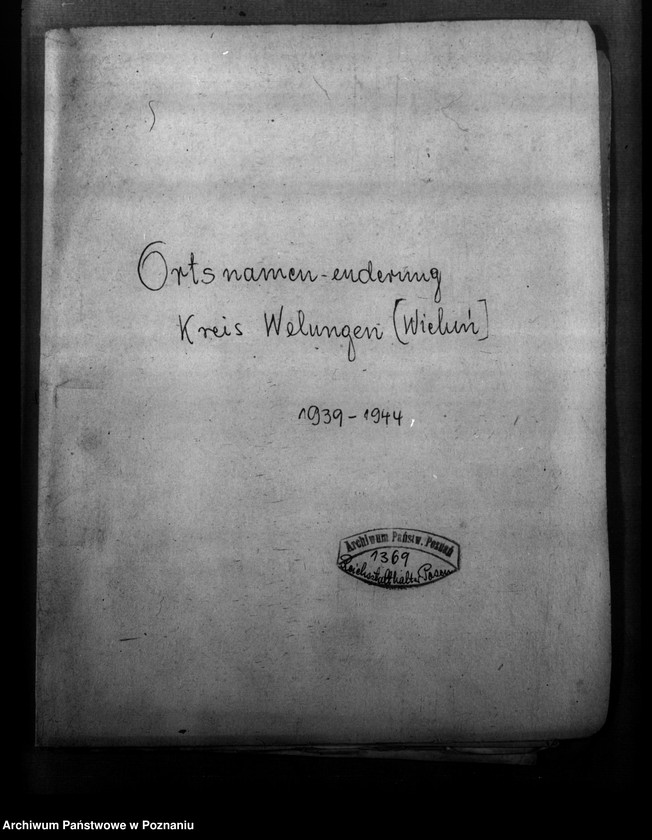 Ortsnamen-enderung
Kreis Welungen [Wieluń]
1939-1944
Archiwum Państw. Poznań
1369
Reichsstatthalter Posen
Archiwum Państwowe w Poznaniu